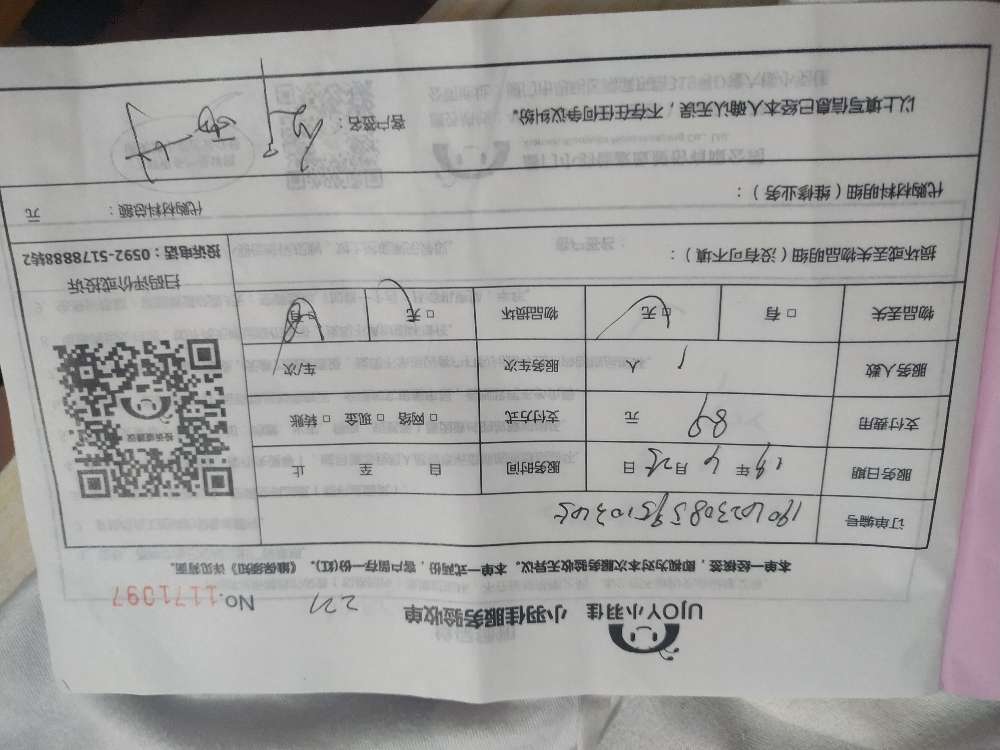 UJOY小羽佳 小羽佳服务验收单 221 No. 1171097
本单一经签核，即视为对本次服务验收无异议。本单一式两份，客户留存一份(红)。《维保须知》详见背面。
订单编号
服务日期 19年6月25日 服务时间 自 至 止
支付费用 89 元 支付方式 □ 网络 □ 现金 □ 转账
服务人数 1 人 服务车次 车/次
物品丢失 □ 有 □ 无 物品损坏 □ 无 □ 有
投诉或建议
扫码评价或投诉
投诉电话：0592-5178888转2
损坏或丢失物品明细（没有可不填）：
代购材料明细（维修业务）： 代购材料总额： 元
以上填写信息已经本人确认无误，不存在任何争议纠纷。 客户签名：